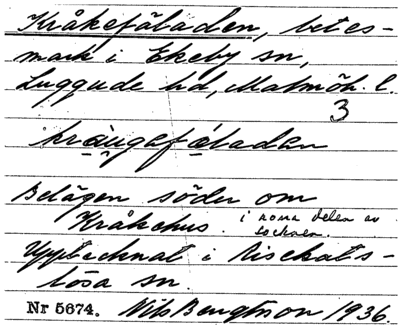 Kråkefäladen, betes-
mark i Ekeby sn,
Luggude hd, Malmöh. l.
3
kråugafäladan
Belägen söder om
Kråkehus. i norra delen av
socknen.
Upptecknat i Risekats-
lösa sn.
Nr 5674. Nils Bengtsson 1936.